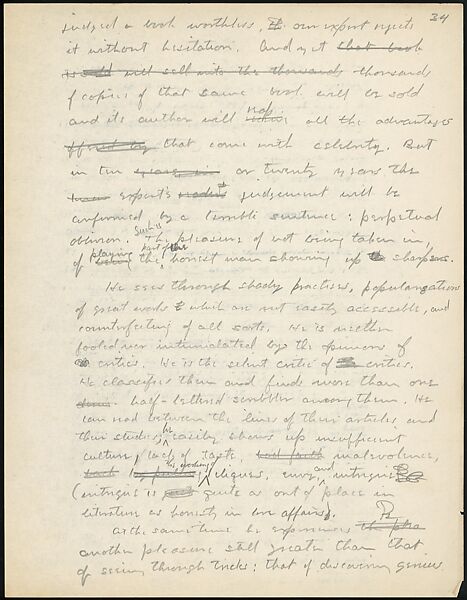 34
judged a book worthless, our expert rejects
it without hesitation. And yet that book
is sold will sell into the thousands thousands
of copies of that same book will be sold
and its author will reap all the advantages
afforded by that come with celebrity. But
in ten years in or twenty years the
expert's judgement will be
confirmed by a terrible sentence: perpetual
oblivion. Such is the pleasure of not being taken in,
of playing the part of the honest man showing up sharpers.
He sees through shady practises, popularizations
of great works which are not easily accessible, and
counterfeiting of all sorts. He is neither
fooled nor intimidated by the opinions of
critics. He is the silent critic of critics.
He classifies them and finds more than one
half-lettered scribbler among them. He
can read between the lines of their articles, and
their studies he easily shows up insufficient
culture, lack of taste, bad faith malevolence,
cliques, envy, and intrigue
(intrigue is quite as out of place in
literature as honesty in love affairs).
At the same time he experiences
another pleasure still greater than that
of seeing through tricks: that of discovering genius